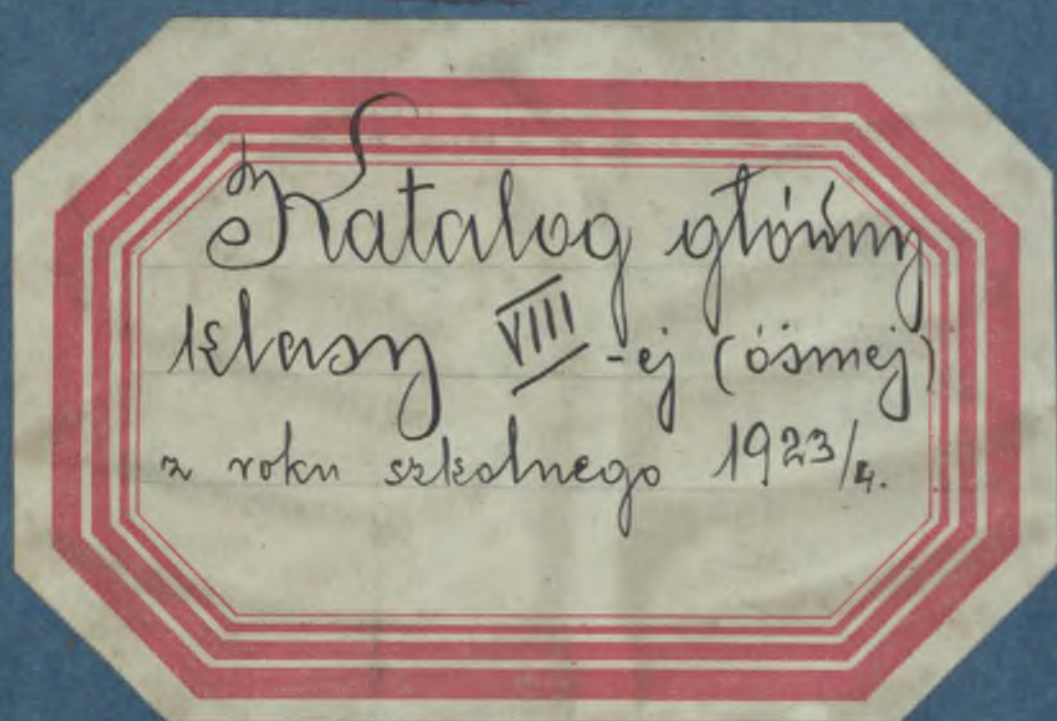 Katalog główny
klasy VIII-ej (ósmej)
z roku szkolnego 1923/4.